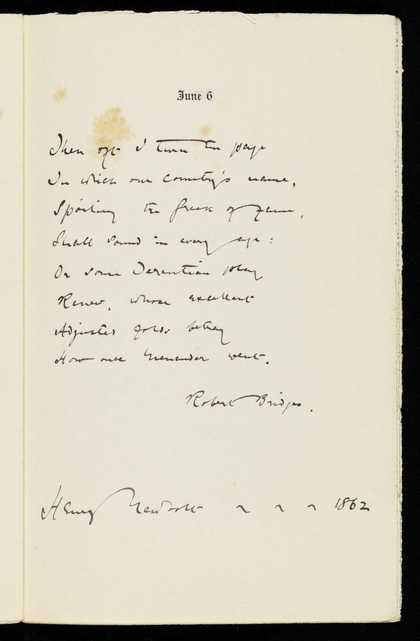 June 6
Then oft I turn the page
In which our country's name,
Spoiling the Greek of fame,
Shall sound in every age:
Or some Terentian play
Renew, whose excellent
Adjusted folds betray
How once Menander went.
Robert Bridges.
Henry Newbolt ~ ~ ~ 1862